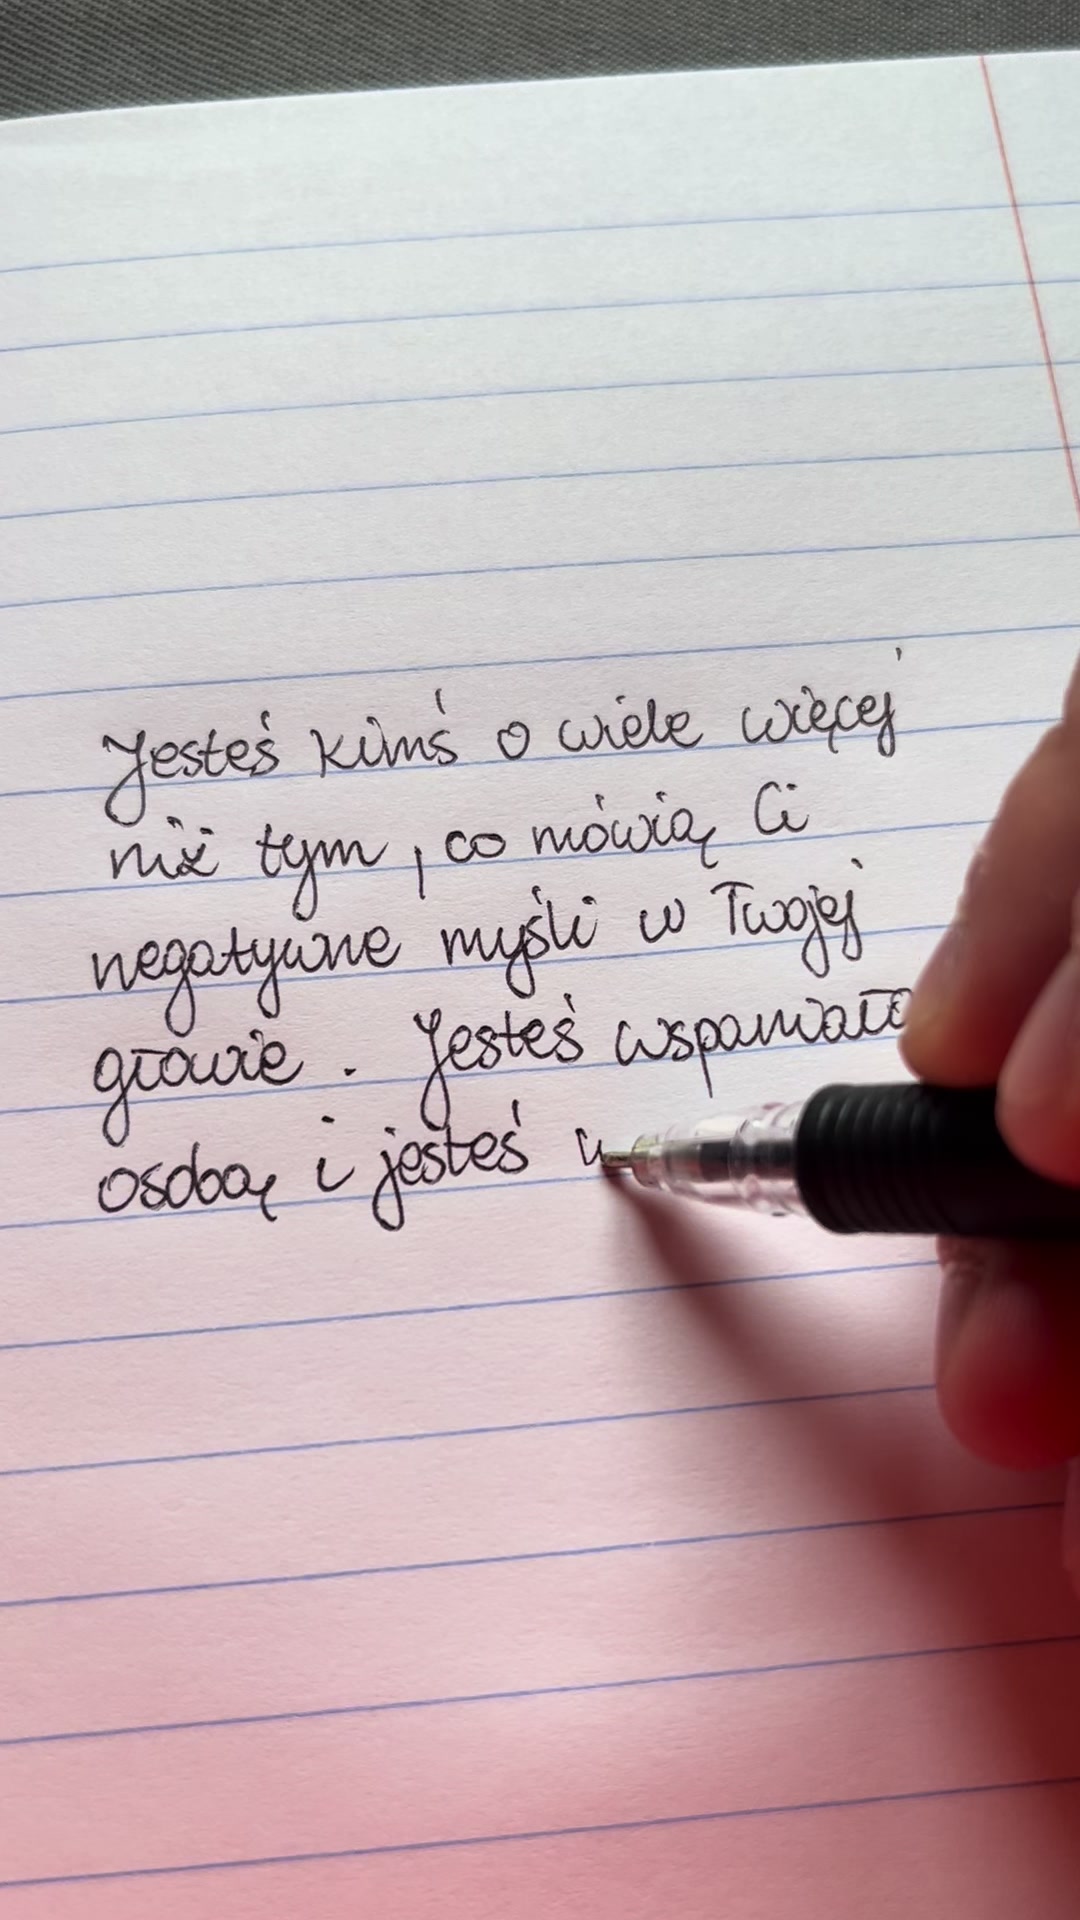 Jesteś kimś o wiele więcej
niż tym, co mówią Ci
negatywne myśli w Twojej
głowie. Jesteś wspaniałą
osobą i jesteś w